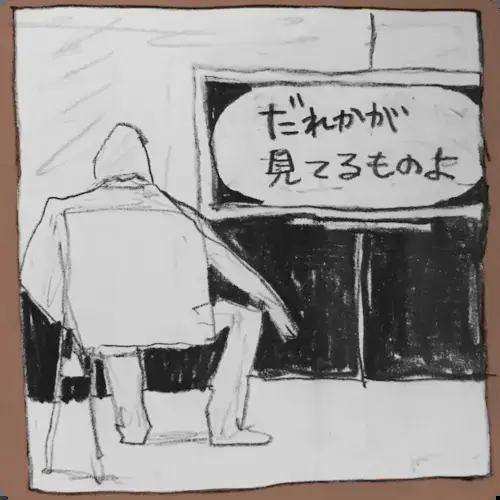 だれかが
見てるものよ